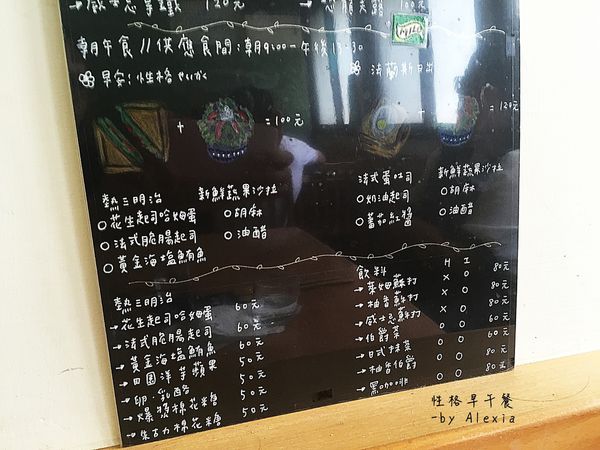 120元
100元
朝午食//供應食間:朝9:00-午後13:30
早安!性格せいかく
法蘭斯日出
MILD
+ =100元
+ =120元
熱三明治
新鮮蔬果沙拉
○花生起司哈姆蛋
○胡麻
○法式脆腸起司
○油醋
○黃金海塩鮪魚
法式蛋吐司
新鮮蔬果沙拉
○奶油起司
○胡麻
○蕃茄紅醬
○油醋
熱三明治
→花生起司哈姆蛋 60元
→法式脆腸起司 60元
→黃金海塩鮪魚 60元
→田園洋芋蘋果 50元
→卵.乳酪 50元
→爆漿棉花糖 50元
→朱古力棉花糖 50元
飲料 H I
→萊姆蘇打 X O 80元
→柚香蘇打 X O 80元
→威士忌蘇打 X O 80元
→伯爵茶 O O 60元
→日式抹茶 O O 60元
→柚子伯爵 O O 80元
→黑咖啡 O O 80元
性格早午餐
-by Alexia